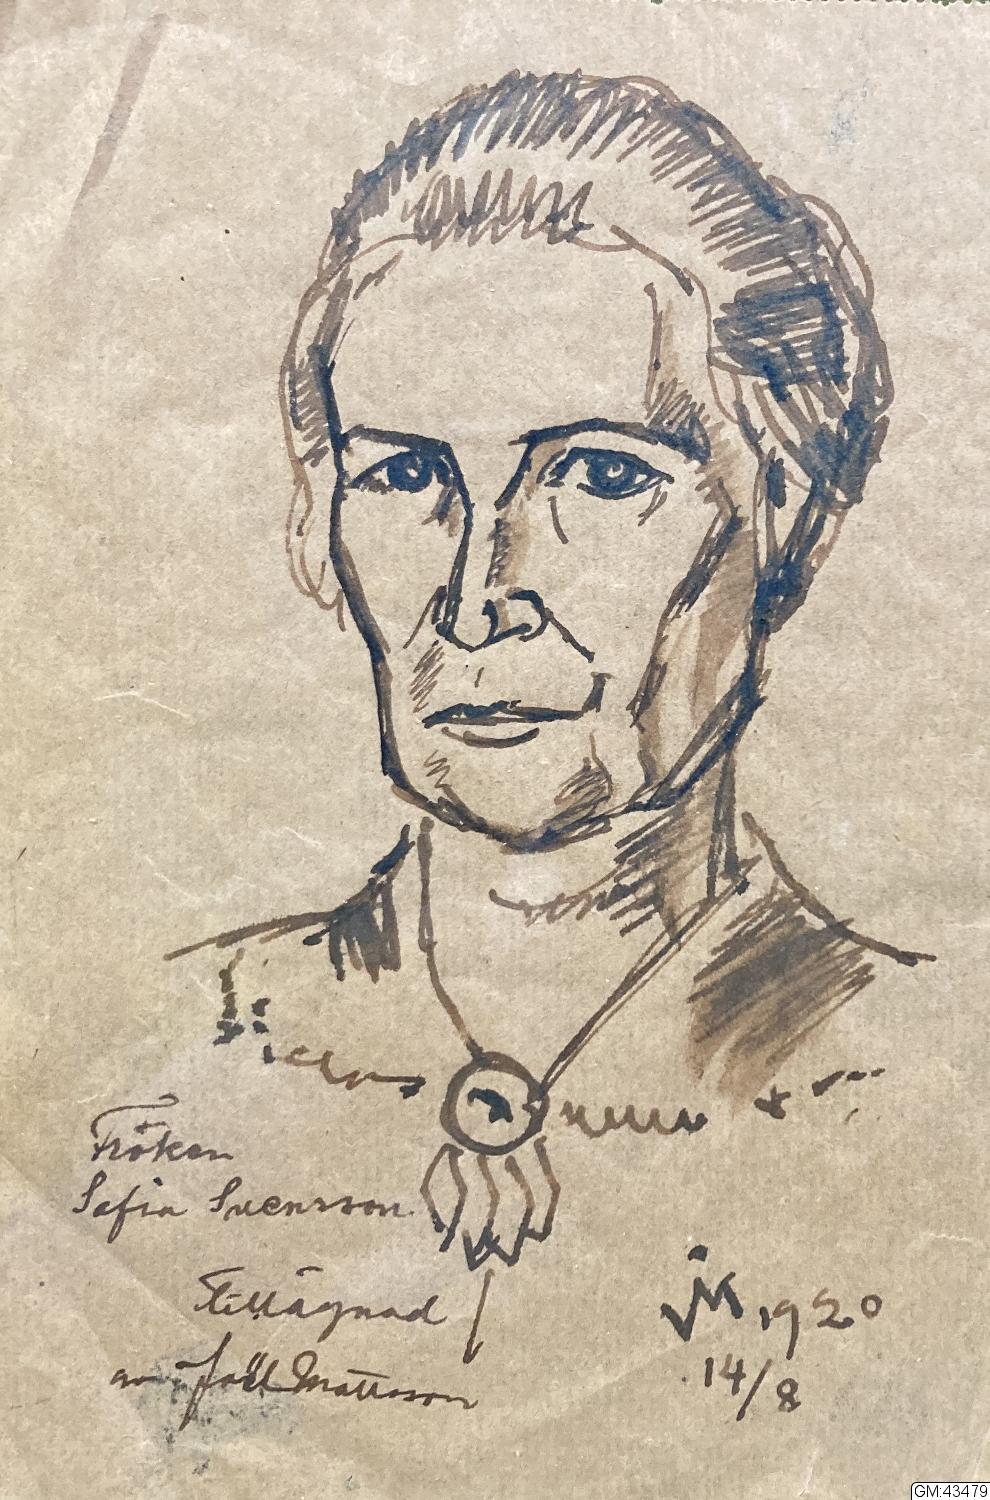 Fröken
Sofia Svensson
Tillägnad
av Joël Mattsson
JM 1920
14/8
GM:43479